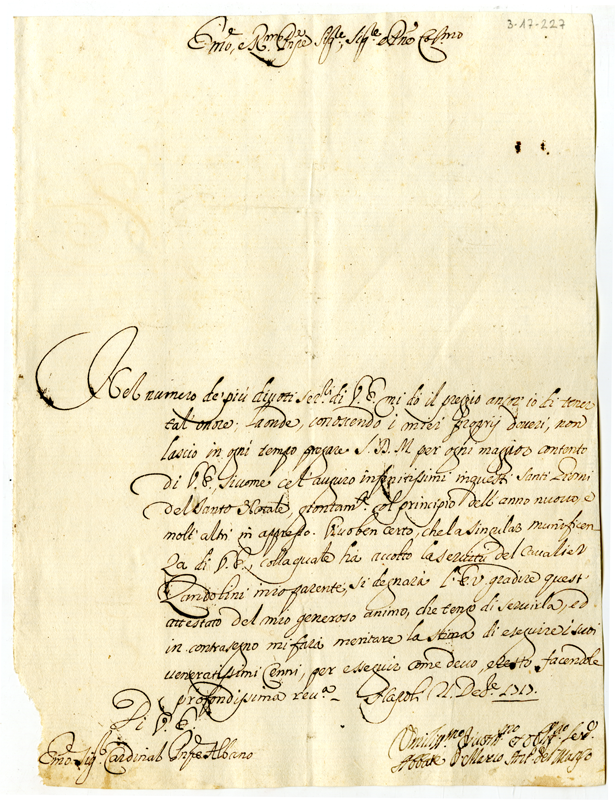 3-17-227
Em.o, e R.mo Prñpe Sig.re, Sig.re e Pne Col.mo
Nel numero de' più divoti ser.ri di V. E. mi dò il pregio ancor' io di tener
tal' onore. Laonde, conoscendo i miei proprij doveri, non
lascio in ogni tempo pregare S. D. M per ogni maggior contento
di V. E., sicome ce l'auguro infinitissimi in questi Santi Giorni
del Santo Natale, giontam.te col principio dell'anno nuovo, e
molt'altri in appresso. Vivo ben certo, che la singular munificen-
za di V. E., colla quale hà accolto la servitù del Cavalier
Landolini mio parente, si degnarà l' E. V. gradire quest'
attestato del mio generoso animo, che tengo di servirla, ed
in contrasegno mi farà meritare la stima di eseguire i suoi
veneratissimi Cenni, per esseguir come devo, e resto facendole
profondissima reu.a Napoli 21 Dec.e 1717.
Di V. E.
Em.o Sig.r Cardinal Albano
Umiliss.mo Ser.
Abbate